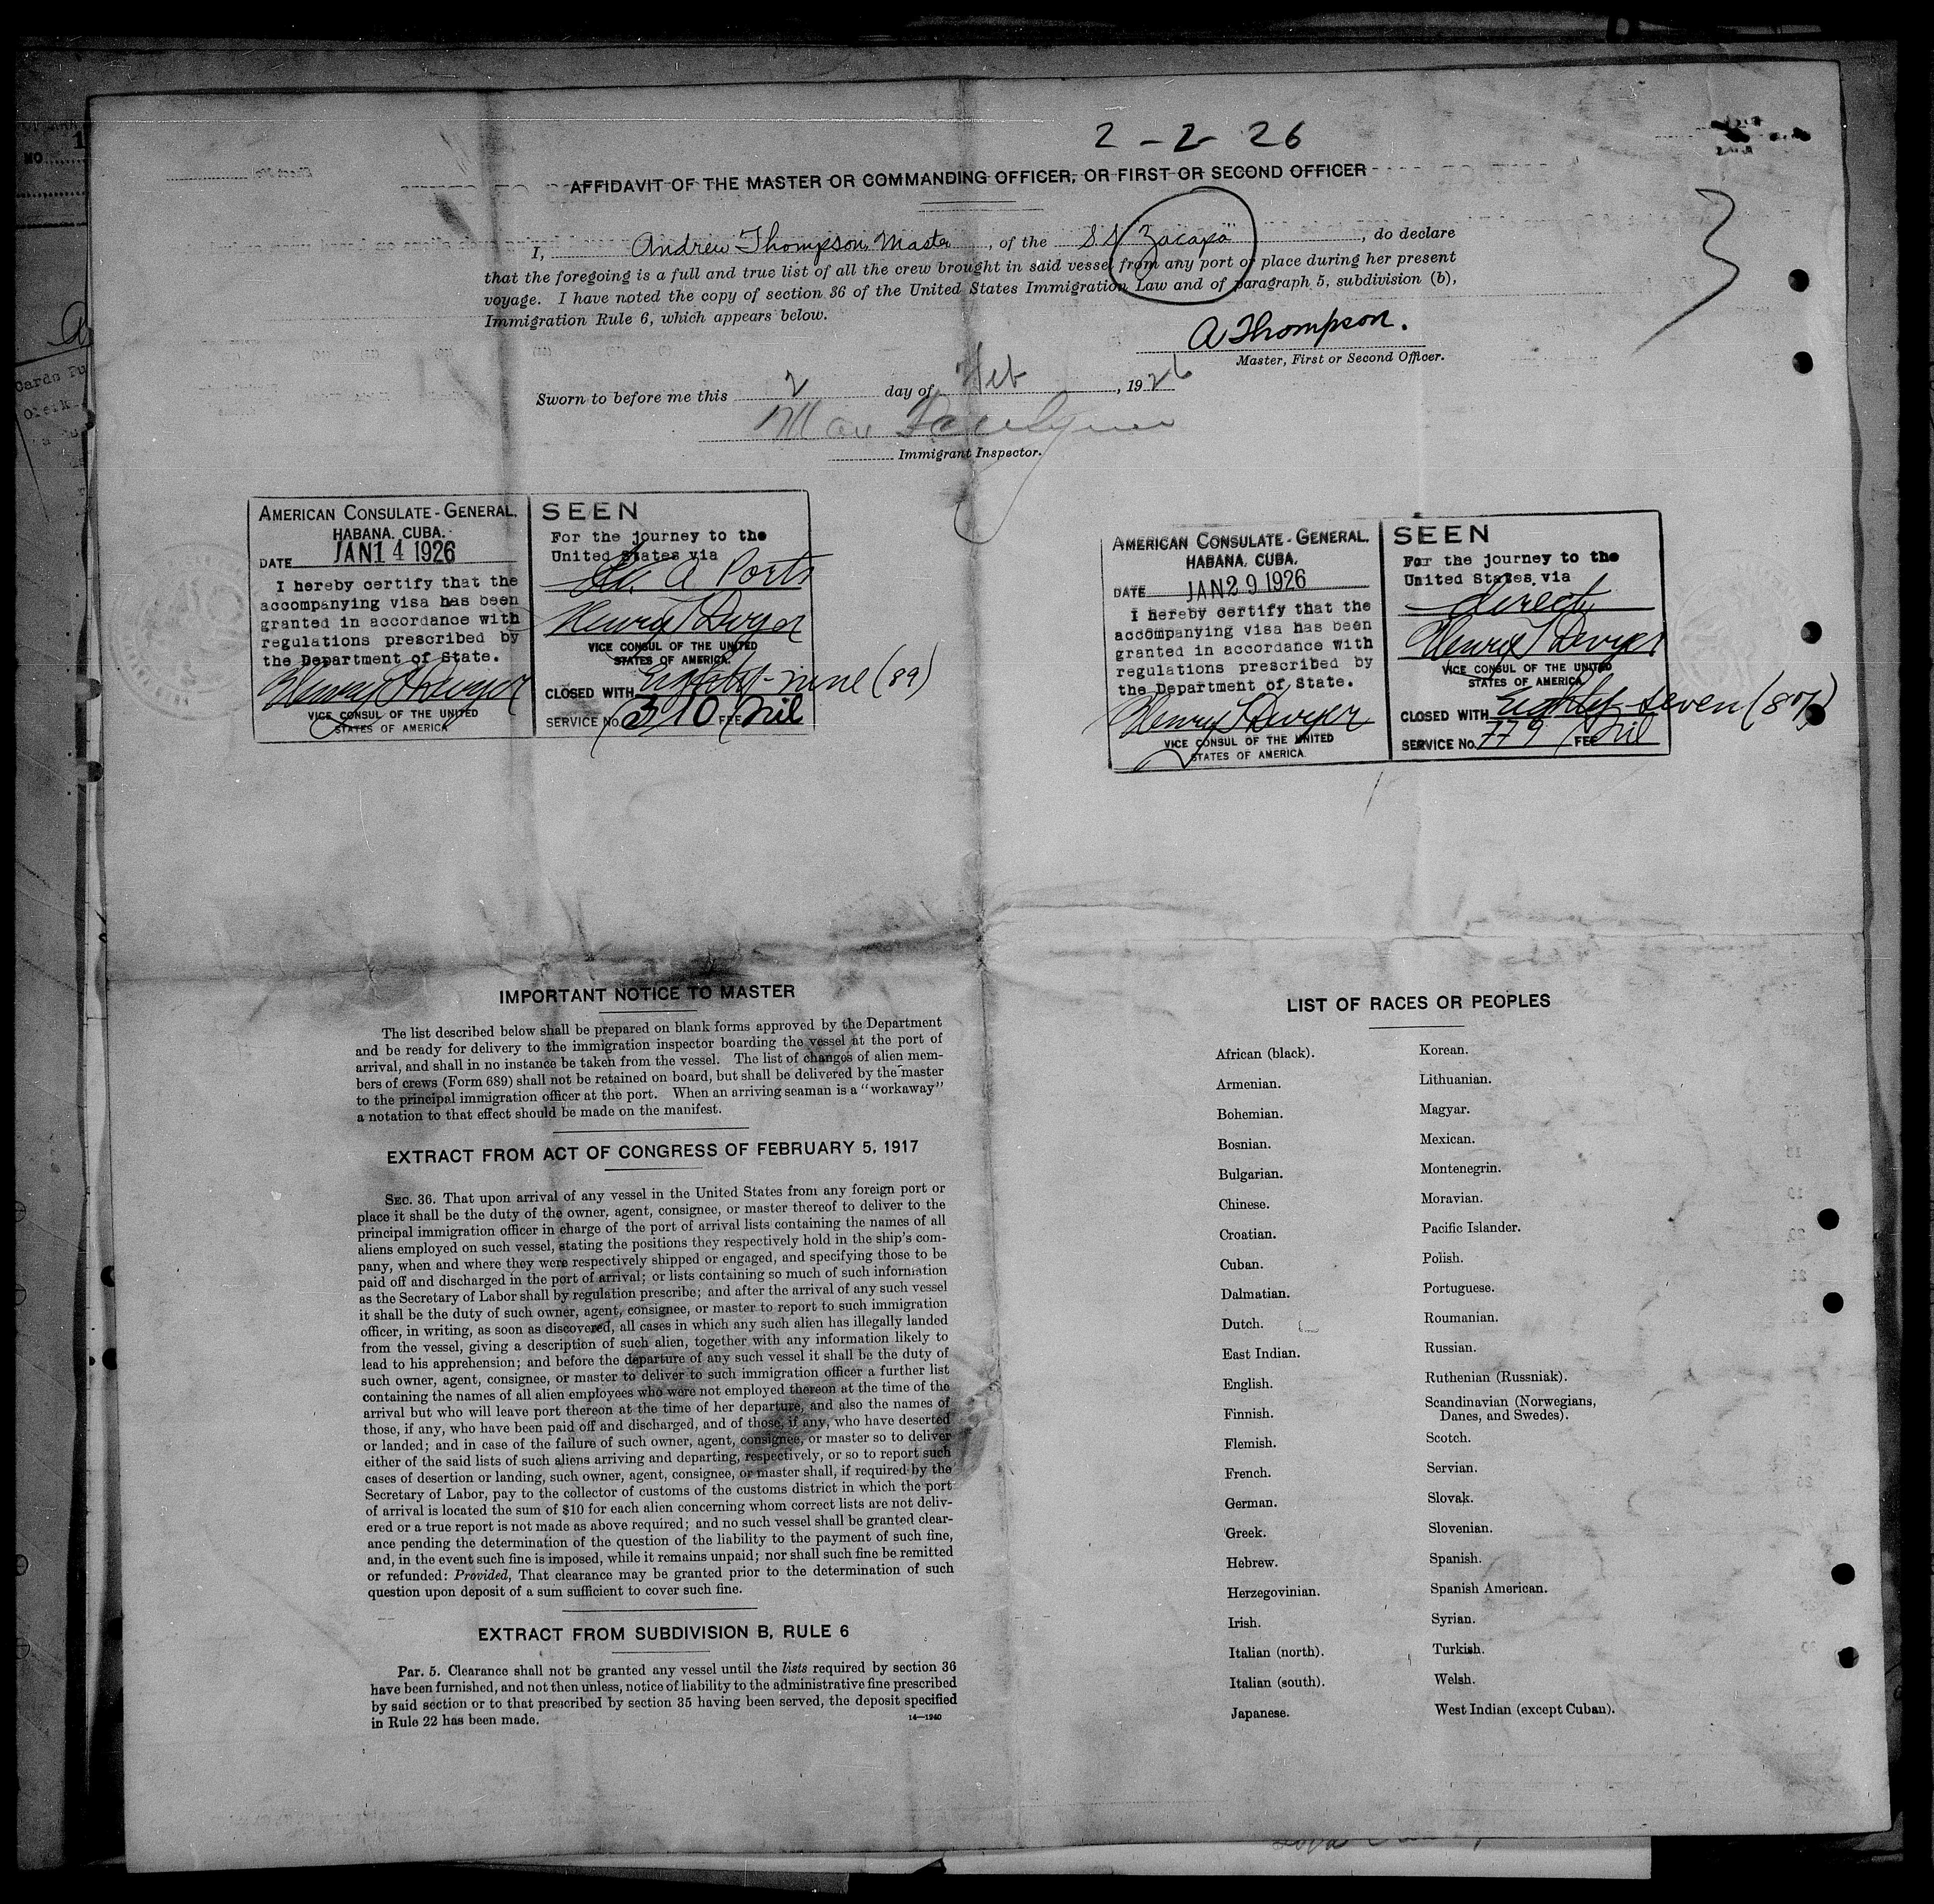 2-2-26
AFFIDAVIT OF THE MASTER OR COMMANDING OFFICER, OR FIRST OR SECOND OFFICER
I, Andrew Thompson, Master, of the S.S. "Zacapa", do declare
that the foregoing is a full and true list of all the crew brought in said vessel from any port or place during her present
voyage. I have noted the copy of section 36 of the United States Immigration Law and of paragraph 5, subdivision (b),
Immigration Rule 6, which appears below.
3
A Thompson.
Master, First or Second Officer.
Sworn to before me this 2 day of Feb, 1926
Immigrant Inspector.
AMERICAN CONSULATE-GENERAL.
HABANA. CUBA.
DATE JAN 14 1926
I hereby certify that the
accompanying visa has been
granted in accordance with
regulations prescribed by
the Department of State.
Henry T Dwyer
VICE CONSUL OF THE UNITED
STATES OF AMERICA
SEEN
For the journey to the
United States via
So. A Ports
Henry T Dwyer
VICE CONSUL OF THE UNITED
STATES OF AMERICA.
CLOSED WITH Eighty-nine (89)
SERVICE No. 310 FEE Nil
AMERICAN CONSULATE-GENERAL.
HABANA, CUBA.
DATE JAN 29 1926
I hereby certify that the
accompanying visa has been
granted in accordance with
regulations prescribed by
the Department of State.
Henry T Dwyer
VICE CONSUL OF THE UNITED
STATES OF AMERICA.
SEEN
For the journey to the
United States, via
direct
Henry T Dwyer
VICE CONSUL OF THE UNITED
STATES OF AMERICA
CLOSED WITH Eighty-seven (87)
SERVICE No. 779 FEE Nil
IMPORTANT NOTICE TO MASTER
The list described below shall be prepared on blank forms approved by the Department
and be ready for delivery to the immigration inspector boarding the vessel at the port of
arrival, and shall in no instance be taken from the vessel. The list of changes of alien mem-
bers of crews (Form 689) shall not be retained on board, but shall be delivered by the master
to the principal immigration officer at the port. When an arriving seaman is a "workaway"
a notation to that effect should be made on the manifest.
EXTRACT FROM ACT OF CONGRESS OF FEBRUARY 5, 1917
SEC. 36. That upon arrival of any vessel in the United States from any foreign port or
place it shall be the duty of the owner, agent, consignee, or master thereof to deliver to the
principal immigration officer in charge of the port of arrival lists containing the names of all
aliens employed on such vessel, stating the positions they respectively hold in the ship's com-
pany, when and where they were respectively shipped or engaged, and specifying those to be
paid off and discharged in the port of arrival; or lists containing so much of such information
as the Secretary of Labor shall by regulation prescribe; and after the arrival of any such vessel
it shall be the duty of such owner, agent, consignee, or master to report to such immigration
officer, in writing, as soon as discovered, all cases in which any such alien has illegally landed
from the vessel, giving a description of such alien, together with any information likely to
lead to his apprehension; and before the departure of any such vessel it shall be the duty of
such owner, agent, consignee, or master to deliver to such immigration officer a further list
containing the names of all alien employees who were not employed thereon at the time of the
arrival but who will leave port thereon at the time of her departure, and also the names of
those, if any, who have been paid off and discharged, and of those, if any, who have deserted
or landed; and in case of the failure of such owner, agent, consignee, or master so to deliver
either of the said lists of such aliens arriving and departing, respectively, or so to report such
cases of desertion or landing, such owner, agent, consignee, or master shall, if required by the
Secretary of Labor, pay to the collector of customs of the customs district in which the port
of arrival is located the sum of $10 for each alien concerning whom correct lists are not deliv-
ered or a true report is not made as above required; and no such vessel shall be granted clear-
ance pending the determination of the question of the liability to the payment of such fine,
and, in the event such fine is imposed, while it remains unpaid; nor shall such fine be remitted
or refunded: Provided, That clearance may be granted prior to the determination of such
question upon deposit of a sum sufficient to cover such fine.
EXTRACT FROM SUBDIVISION B, RULE 6
Par. 5. Clearance shall not be granted any vessel until the lists required by section 36
have been furnished, and not then unless, notice of liability to the administrative fine prescribed
by said section or to that prescribed by section 35 having been served, the deposit specified
in Rule 22 has been made.
14—1240
LIST OF RACES OR PEOPLES
African (black).
Armenian.
Bohemian.
Bosnian.
Bulgarian.
Chinese.
Croatian.
Cuban.
Dalmatian.
Dutch.
East Indian.
English.
Finnish.
Flemish.
French.
German.
Greek.
Hebrew.
Herzegovinian.
Irish.
Italian (north).
Italian (south).
Japanese.
Korean.
Lithuanian.
Magyar.
Mexican.
Montenegrin.
Moravian.
Pacific Islander.
Polish.
Portuguese.
Roumanian.
Russian.
Ruthenian (Russniak).
Scandinavian (Norwegians,
Danes, and Swedes).
Scotch.
Servian.
Slovak.
Slovenian.
Spanish.
Spanish American.
Syrian.
Turkish.
Welsh.
West Indian (except Cuban).